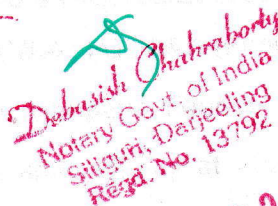 Debasish Chakraborty
Notary Govt. of India
Siliguri, Darjeeling
Regd. No. 13792